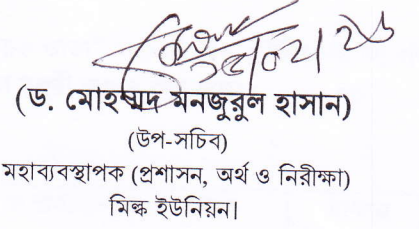 (ড. মোহাম্মদ মনজুরুল হাসান)
(উপ-সচিব)
মহাব্যবস্থাপক (প্রশাসন, অর্থ ও নিরীক্ষা)
মিল্ক ইউনিয়ন।